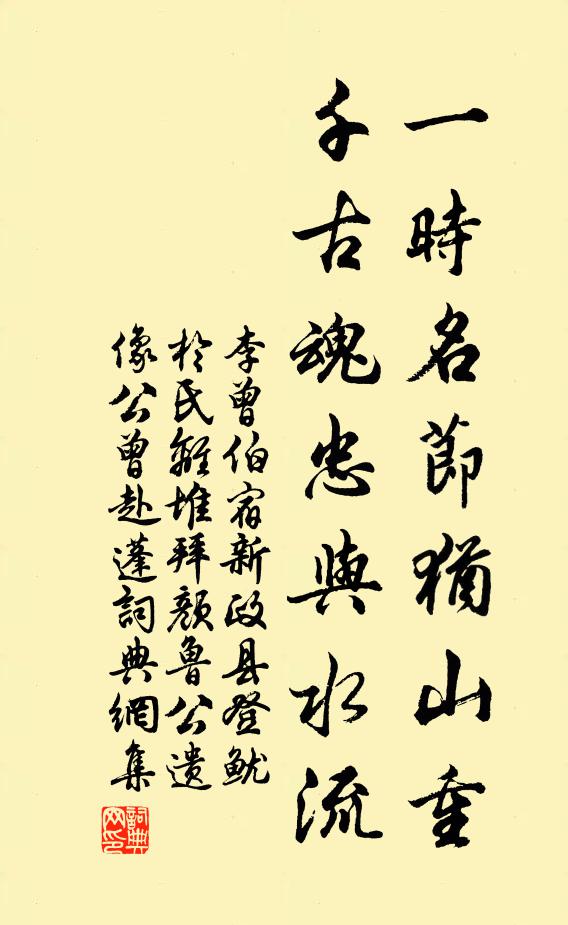 一時名節猶山重
千古魂忠與水流
李曾伯宿新政县登鱿
於氏離堆拜顏魯公遗
像公曾赴蓬詞典網集
詞典网印